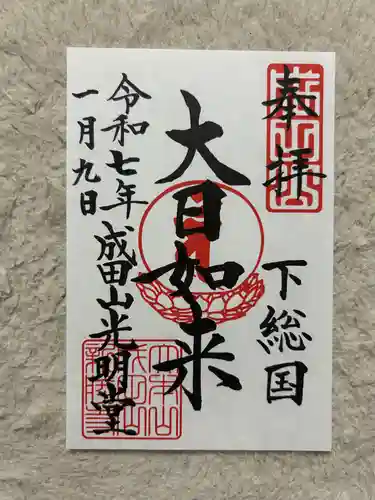 奉拝
下総国
大日如来
成田山光明堂
令和七年
一月九日